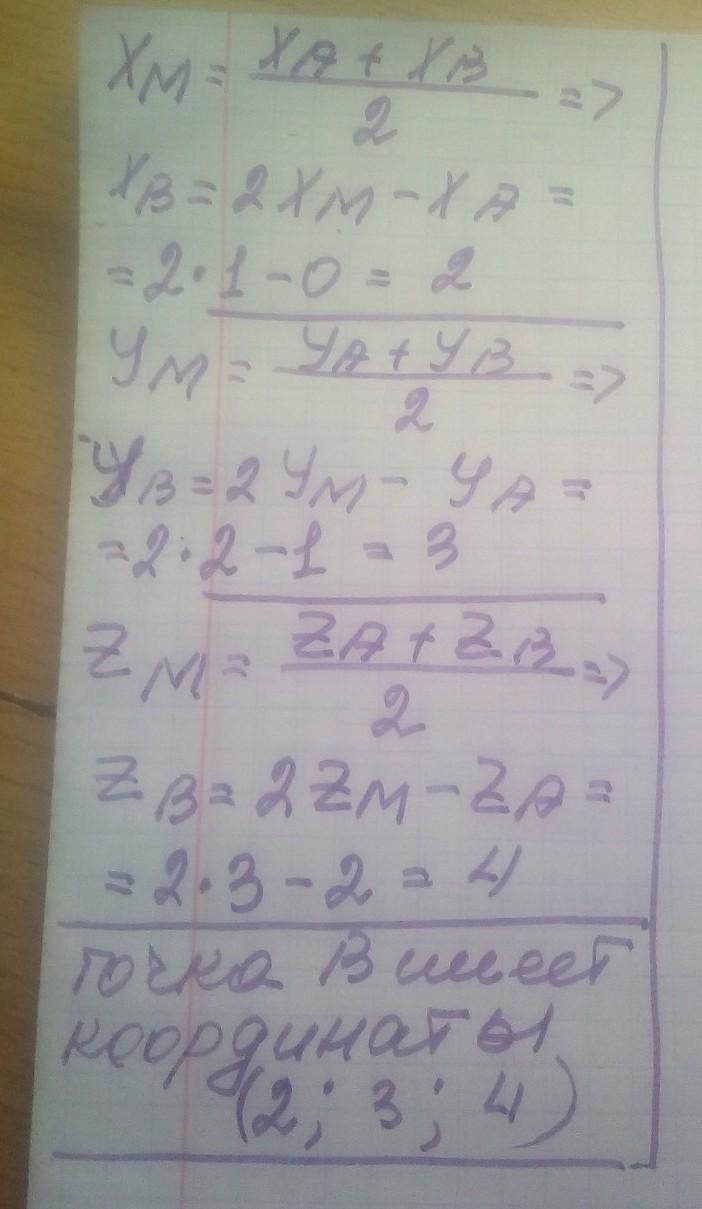 XM = XA + XB / 2 =>
XB = 2XM - XA =
= 2·1 - 0 = 2
YM = YA + YB / 2 =>
YB = 2YM - YA =
= 2·2 - 1 = 3
ZM = ZA + ZB / 2 =>
ZB = 2ZM - ZA =
= 2·3 - 2 = 4
точка B имеет
координаты
(2; 3; 4)